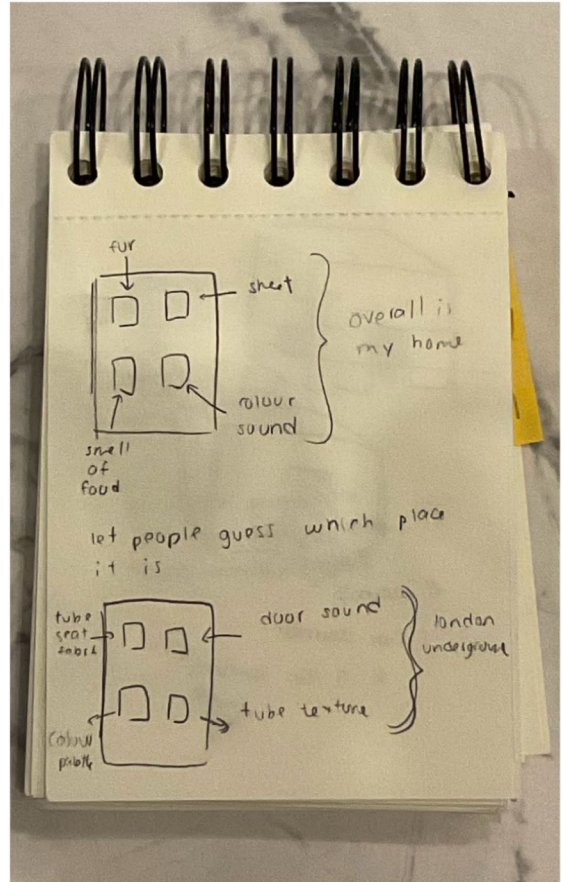 fur
sheet
overall is
my home
colour
sound
smell
of
food
let people guess which place
it is
tube
seat
fabric
door sound
london
underground
tube texture
colour
palette